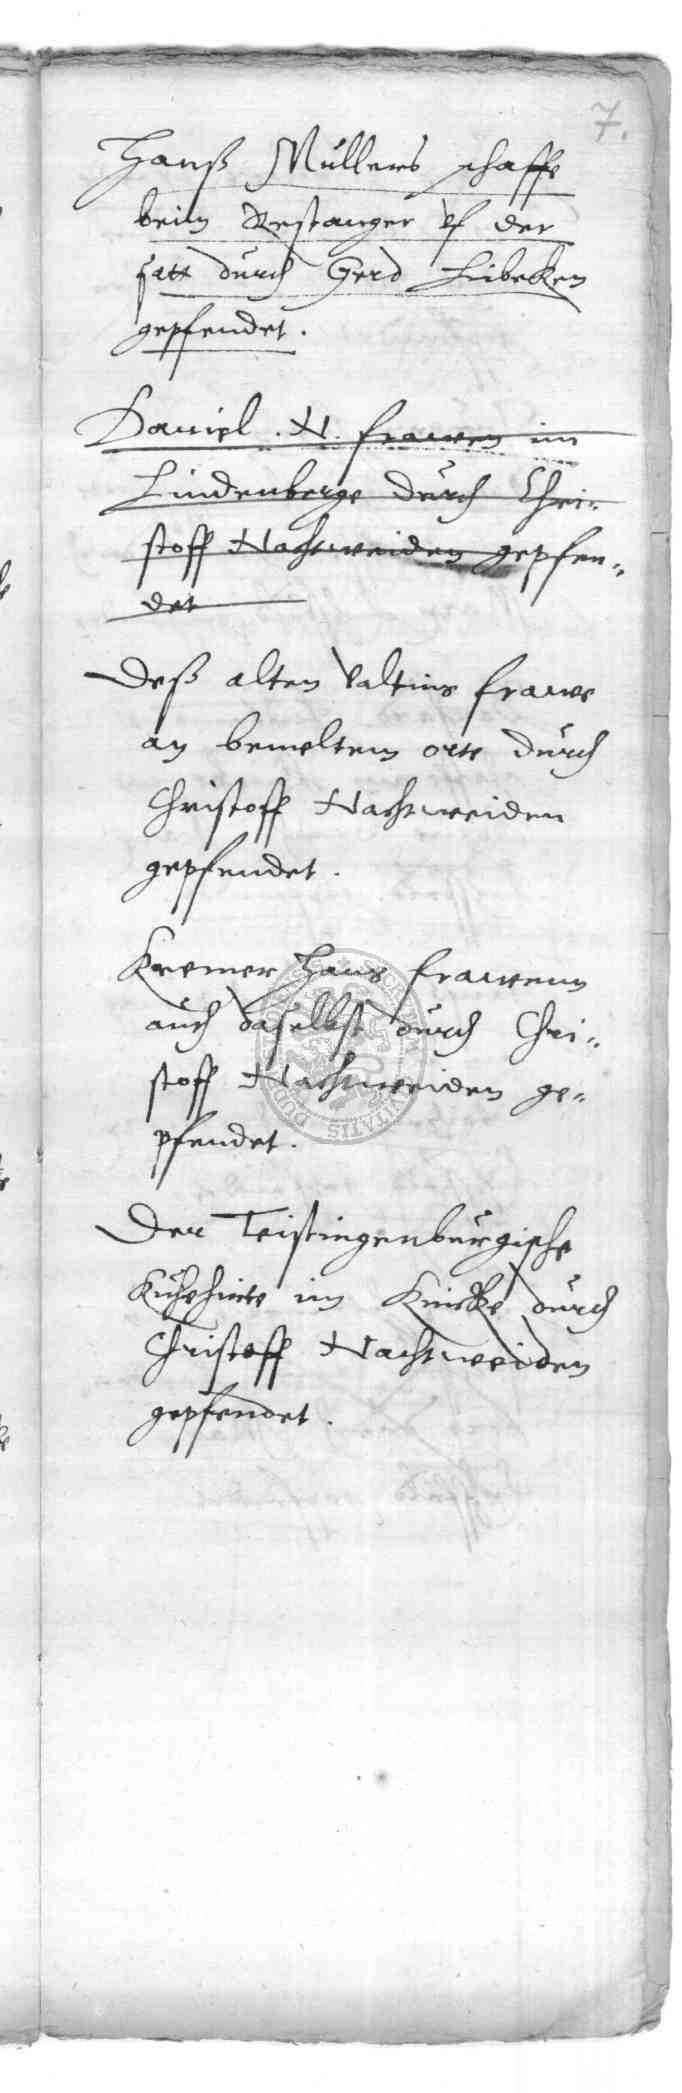 7.
Hanß Müllers schaffe
beim Restanger vf der
satt durch Gerd Libecken
gepfendet.
Daniel. N. frawen im
Lindenberge durch Chri-
stoff Nachtweiden gepfen-
det
Deß alten Valtins frawe
an bemeltem orte durch
Christoff Nachtweiden
gepfendet.
Kremer Hans frawenn
auch daselbst durch Chri-
stoff Nachtweiden ge-
pfendet.
Der Teistingenburgische
Kuhehirte im durch
Christoff Nachtweiden
gepfendet.